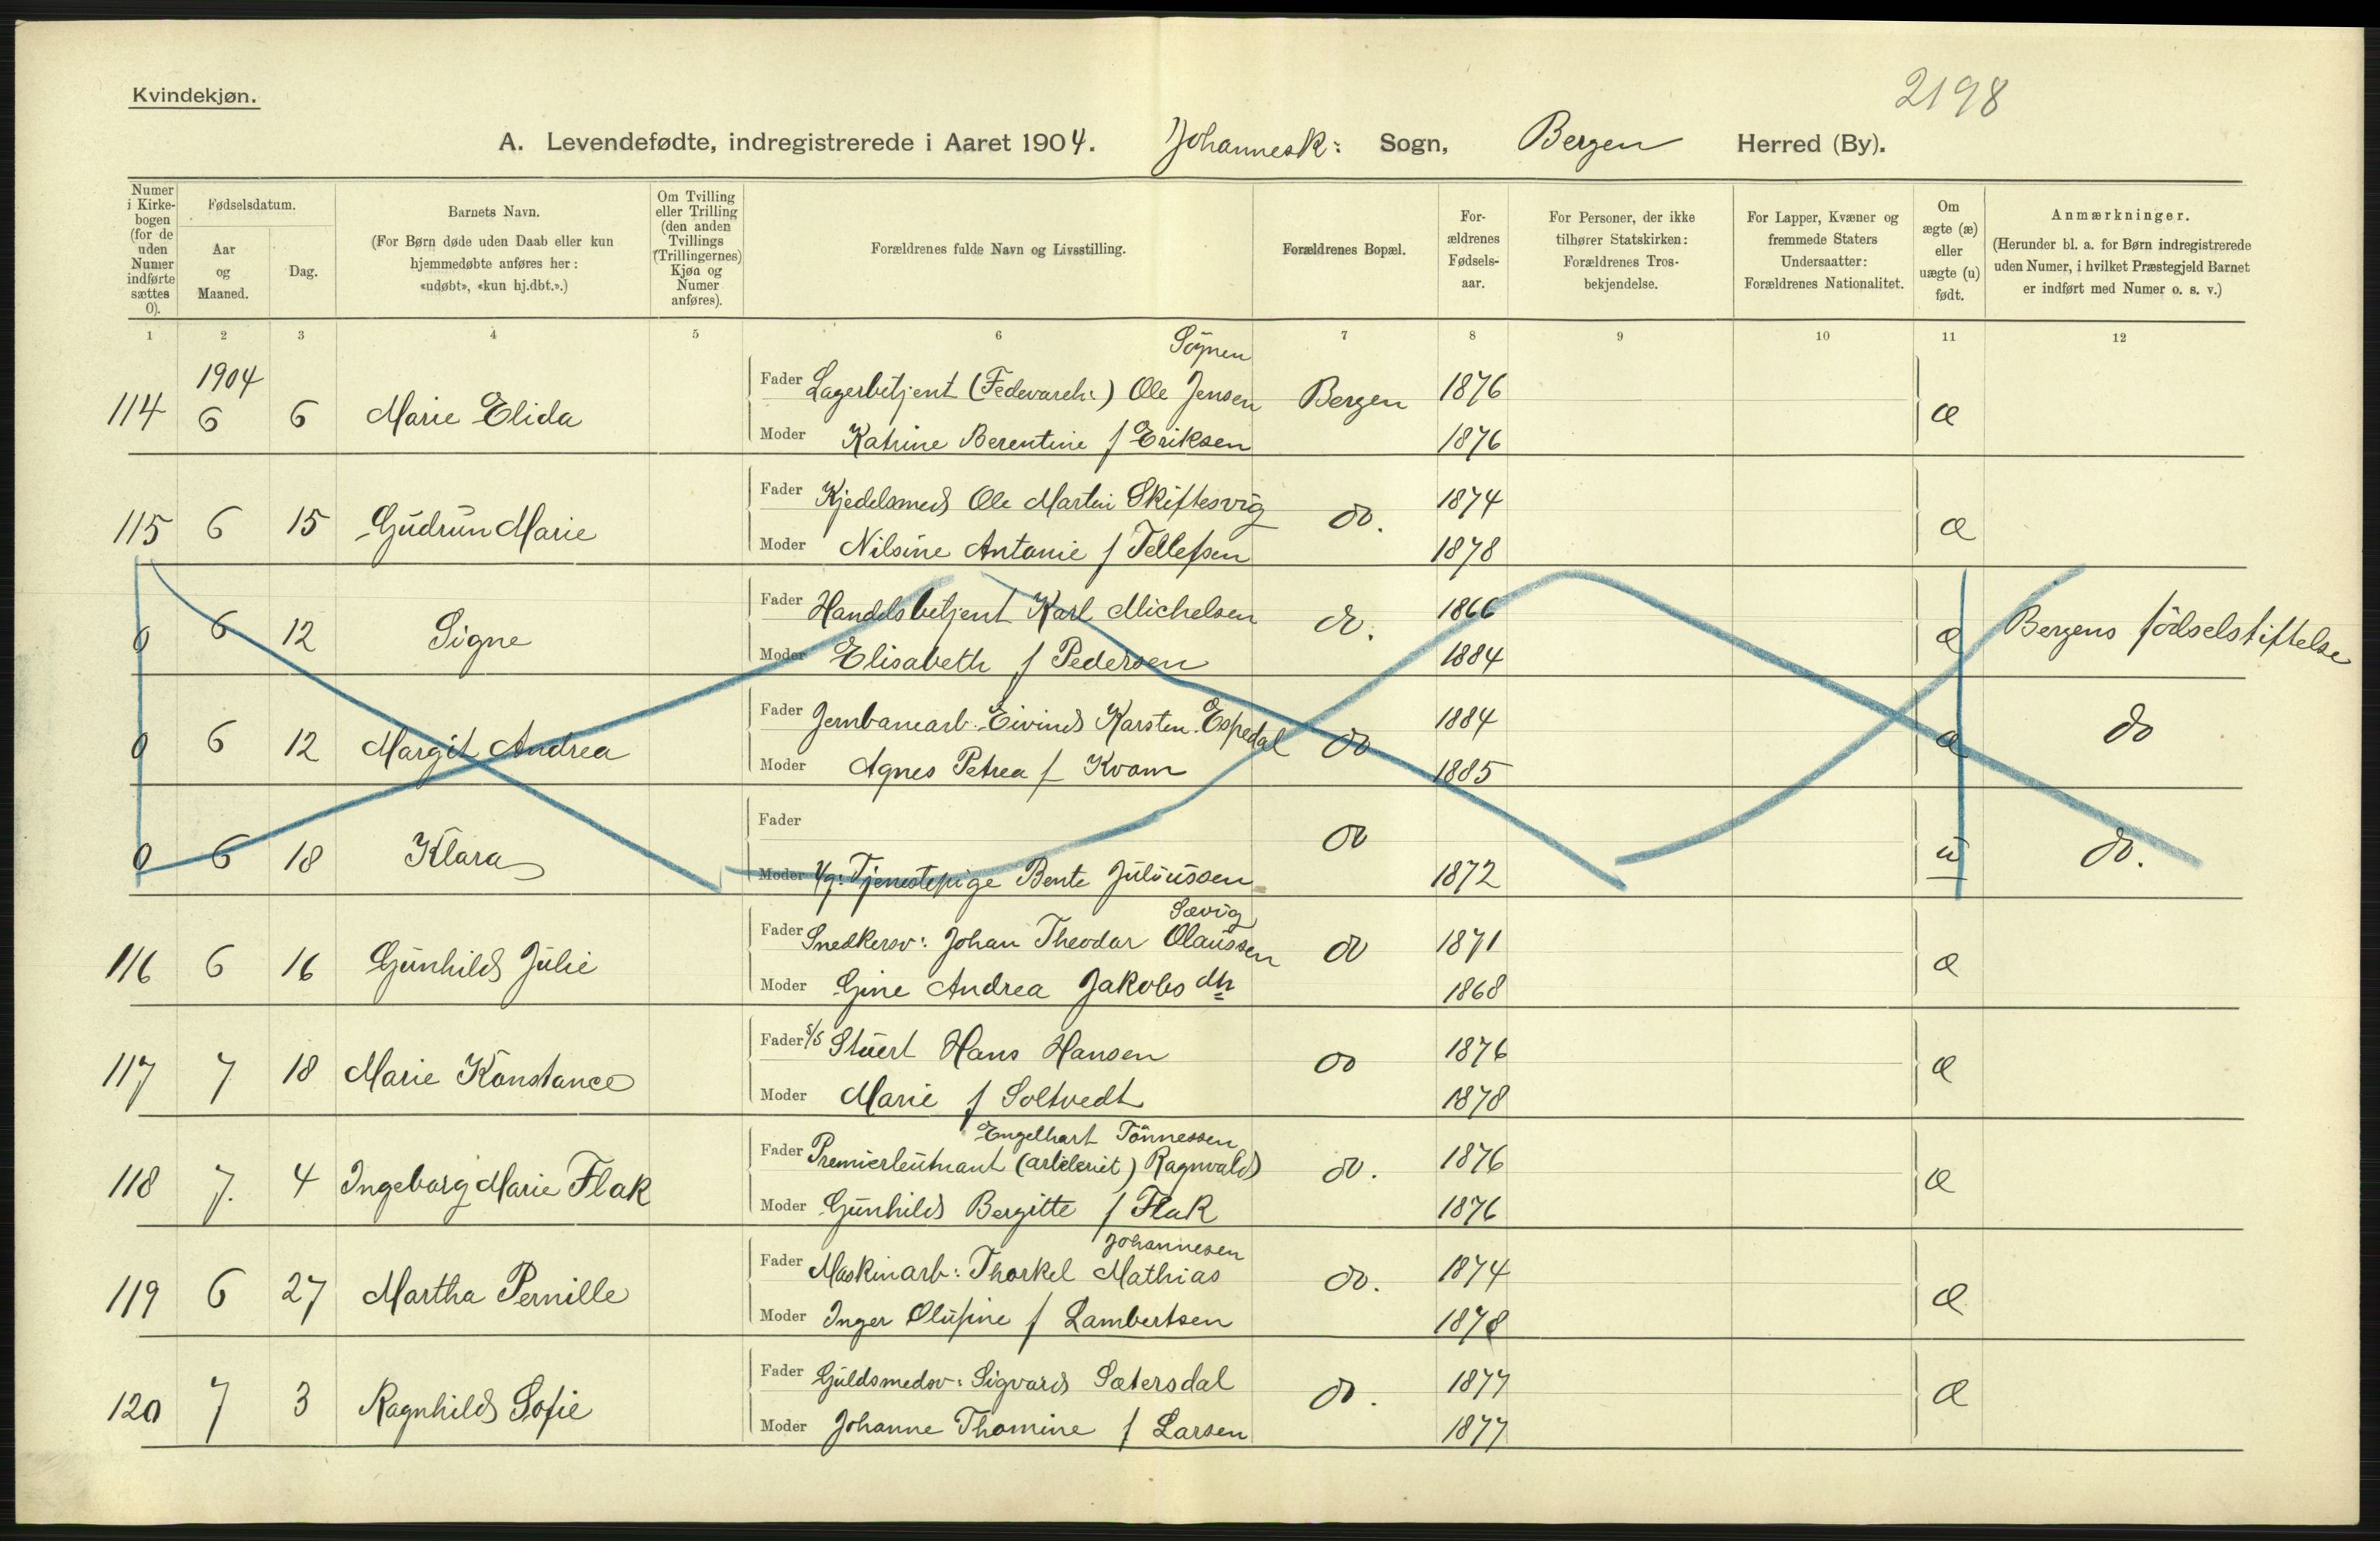 2198
Kvindekjøn.
A. Levendefødte, indregistrerede i Aaret 1904. Johannesk: Sogn, Bergen Herred (By).
Numer i Kirke-bogen (for de uden Numer indførte sættes 0).
Fødselsdatum.
Aar og Maaned.
Dag.
Barnets Navn.
(For Børn døde uden Daab eller kun
hjemmedøbte anføres her:
«udøbt», «kun hj.dbt.».)
Om Tvilling
eller Trilling
(den anden
Tvillings
(Trillingernes)
Kjøn og
Numer
anføres).
Forældrenes fulde Navn og Livsstilling.
Forældrenes Bopæl.
For-
ældrenes
Fødsels-
aar.
For Personer, der ikke
tilhører Statskirken:
Forældrenes Tros-
bekjendelse.
For Lapper, Kvæner og
fremmede Staters
Undersaatter:
Forældrenes Nationalitet.
Om
ægte (æ)
eller
uægte (u)
født.
Anmærkninger.
(Herunder bl. a. for Børn indregistrerede
uden Numer, i hvilket Præstegjeld Barnet
er indført med Numer o. s. v.)
1 2 3 4 5 6 7 8 9 10 11 12
Søynen
1904
114 6 6 Marie Elida Fader Lagerbetjent (Fedevareh:) Ole Jensen Bergen 1876 æ
Moder Katrine Berentine f Eriksen 1876
115 6 15 Gudrun Marie Fader Kjedelsmed Ole Martin Skiftesvig do. 1874 æ
Moder Nilsine Antonie f Tellefsen 1878
0 6 12 Signe Fader Handelsbetjent Karl Michelsen do. 1866 æ Bergens fødselstiftelse
Moder Elisabeth f Pedersen 1884
0 6 12 Margit Andrea Fader Jernbanearb. Eivind Karsten Espedal do 1884 æ do
Moder Agnes Petrea f Kvam 1885
0 6 18 Klara Fader do u do.
Moder Ug: Tjenestepige Bente Juliussen 1872
Sævig
116 6 16 Gunhild Julie Fader Snedkersv: Johan Theodor Olaussen do 1871 æ
Moder Gine Andrea Jakobs dtr 1868
117 7 18 Marie Konstance Fader S/S Stuert Hans Hansen do 1876 æ
Moder Marie f Soltvedt 1878
Engelhart Tönnessen
118 7. 4 Ingeborg Marie Flak Fader Premierleutnant (artileriet) Ragnvald do. 1876 æ
Moder Gunhild Bergitte f Flak 1876
Johannesen
119 6 27 Martha Pernille Fader Maskinarb: Thorkel Mathias do. 1874 æ
Moder Inger Olufine f Lambertsen 1878
120 7 3 Ragnhild Sofie Fader Guldsmedsv: Sigvard Sætersdal do. 1877 æ
Moder Johanne Thomine f Larsen 1877